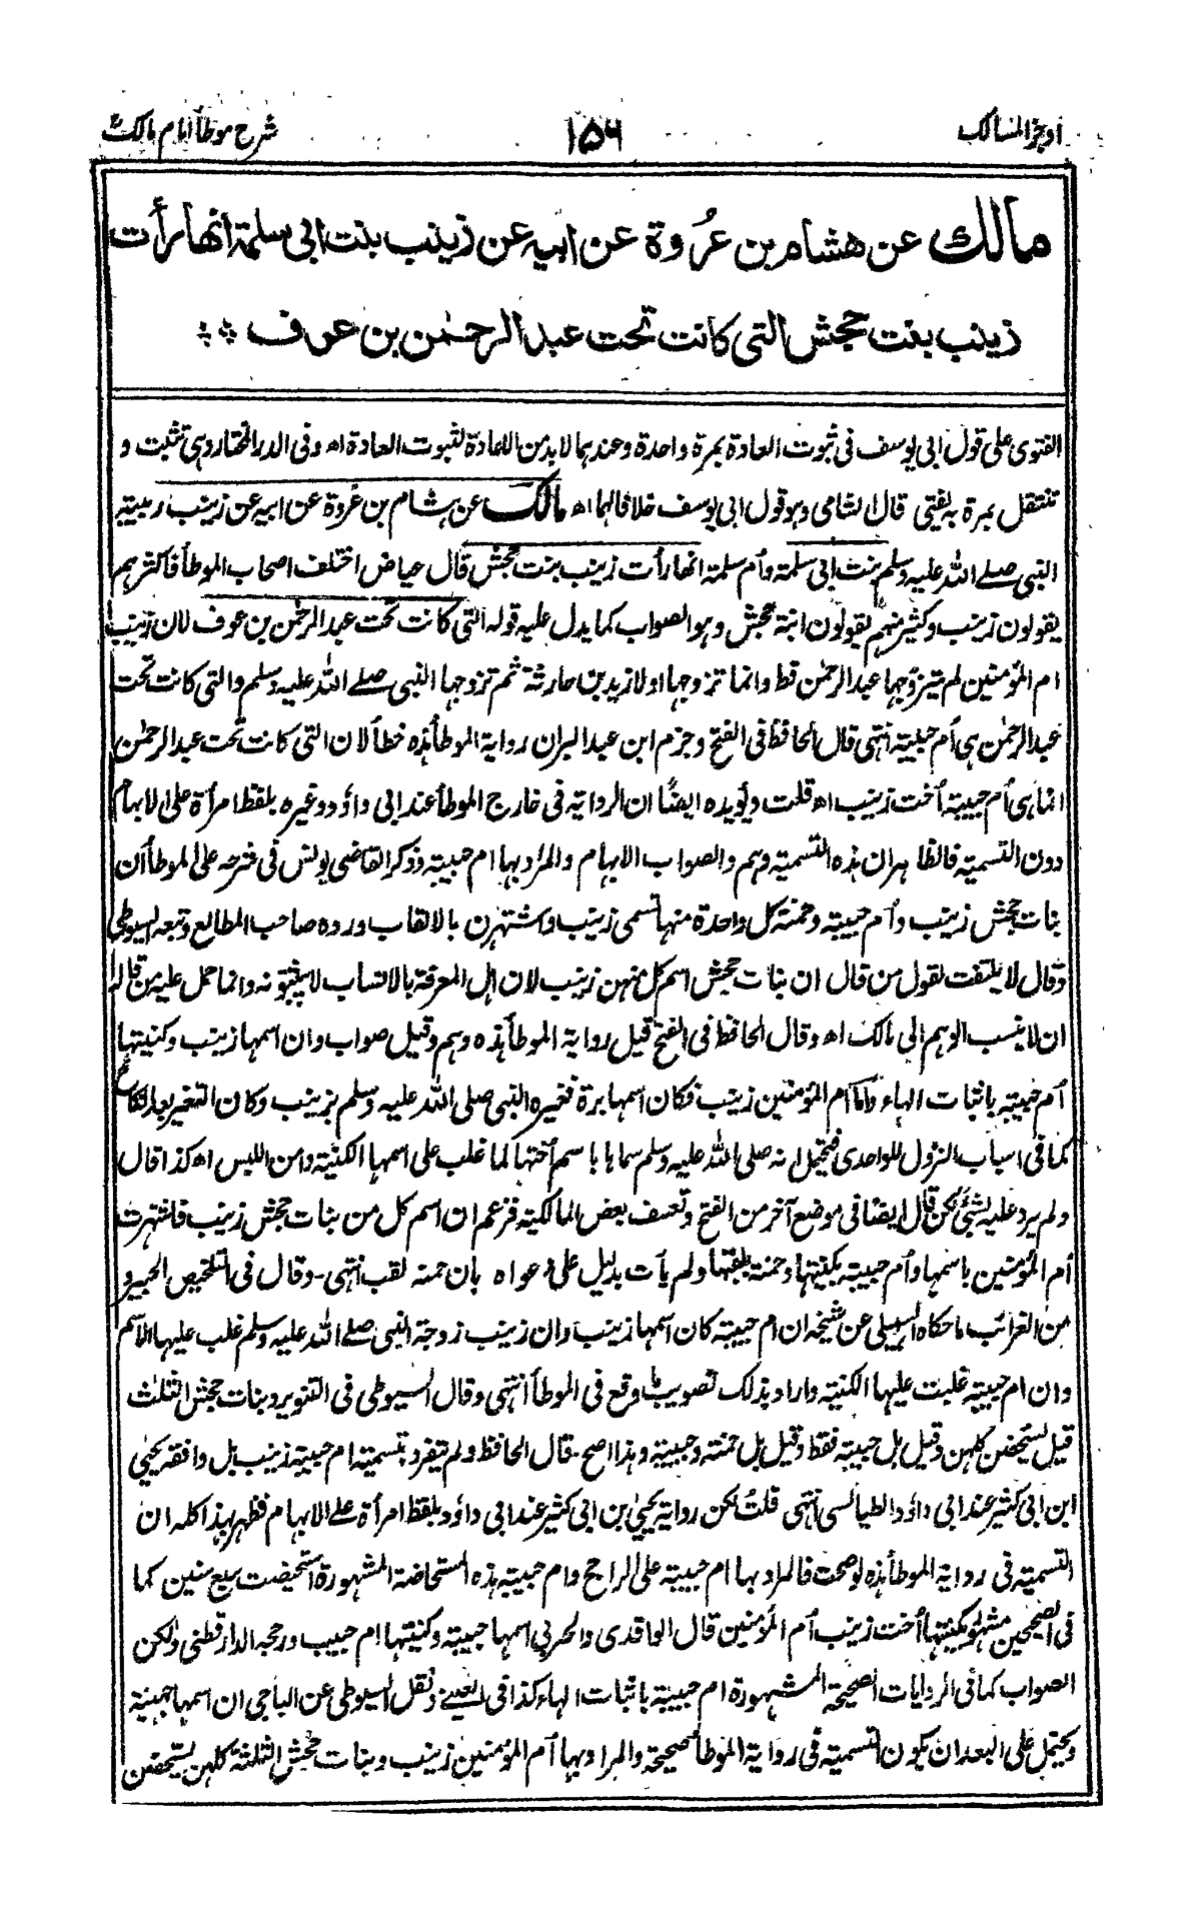 اوجز المسالك
١٥٦
شرح موطأ امام مالك
مالك عن هشام بن عُروة عن ابيه عن زينب بنت ابي سلمة انها رأت
زينب بنت جحش التي كانت تحت عبد الرحمٰن بن عوف
الفتوى على قول ابى يوسف فى ثبوت العادة بمرة واحدة وعندهما لا بد من الاعادة لثبوت العادة اه وفى الدر المختار وهى تثبت و
تنتقل بمرة به يفتى قال الشامى وهو قول ابى يوسف خلافا لهما اه مالك عن هشام بن عروة عن ابيه عن زينب ربيبة
النبى صلے الله عليه وسلم بنت ابى سلمة وأم سلمة انها رأت زينب بنت جحش قال عياض اختلف اصحاب الموطأ فاكثرهم
يقولون زينب وكثير منهم يقولون ابنة جحش وهو الصواب كما يدل عليه قوله التى كانت تحت عبد الرحمٰن بن عوف لان زينب
ام المؤمنين لم يتزوجها عبد الرحمٰن قط وانما تزوجها اولا زيد بن حارثة ثم تزوجها النبى صلے الله عليه وسلم والتى كانت تحت
عبد الرحمٰن هى أم حبيبة انتهى قال الحافظ فى الفتح وجزم ابن عبد البر ان رواية الموطأ هذه خطأ لان التى كانت تحت عبد الرحمٰن
انما هى أم حبيبة أخت زينب اه قلت ويؤيده ايضًا ان الرواية فى خارج الموطأ عند ابى داؤد وغيره بلفظ امرأة على الابهام
دون التسمية فالظاهر ان هذه التسمية وهم والصواب الابهام والمراد بها ام حبيبة وذكر القاضى يونس فى شرحه على الموطأ ان
بنات جحش زينب وأم حبيبة وحمنة كل واحدة منها تسمى زينب واشتهرن بالالقاب ورده صاحب المطالع وتبعه السيوطى
وقال لا يلتفت لقول من قال ان بنات جحش اسم كل منهن زينب لان اهل المعرفة بالانساب لا يثبتونه وانما حمل عليه من قاله
ان لا ينسب الوهم الى مالك اه وقال الحافظ فى الفتح قيل رواية الموطأ هذه وهم وقيل صواب وان اسمها زينب وكنيتها
أم حبيبة باثبات الهاء واما ام المؤمنين زينب فكان اسمها برة فغيره النبى صلى الله عليه وسلم بزينب وكان التغير بعد النكاح
كما فى اسباب النزول للواحدى فيحتمل انه صلى الله عليه وسلم سماها باسم أختها لما غلب على اسمها الكنية وامن اللبس اه كذا قال
ولم يرد عليه بشئ لكن قال ايضًا فى موضع آخر من الفتح وتعسف بعض المالكية فزعم ان اسم كل من بنات جحش زينب فاشتهرت
أم المؤمنين باسمها وأم حبيبة بكنيتها وحمنة بلقبها ولم يأت بدليل على دعواه بان حمنة لقب انتهى- وقال فى التلخيص الحبير و
من الغرائب ما حكاه السهيلى عن شيخه ان ام حبيبة كان اسمها زينب وان زينب زوجة النبى صلے الله عليه وسلم غلب عليها الاسم
وان ام حبيبة غلبت عليها الكنية واراد بذلك تصويب ما وقع فى الموطأ انتهى وقال السيوطى فى التنوير وبنات جحش الثلاث
قيل يستحضن كلهن وقيل بل حبيبة فقط وقيل بل حمنة وحبيبة وهذا اصح- قال الحافظ ولم يتفرد بتسمية ام حبيبة زينب بل وافقه يحيٰى
ابن ابى كثير عند ابى داؤد الطيالسى انتهى قلت لكن رواية يحيٰى بن ابى كثير عند ابى داؤد بلفظ امرأة على الابهام فظهر بهذا كله ان
التسمية فى رواية الموطأ هذه لو صحت فالمراد بها ام حبيبة على الراجح وام حبيبة هذه المستحاضة المشهورة استحيضت سبع سنين كما
فى الصحيحين مشهورة بكنيتها أخت زينب أم المؤمنين قال الواقدى والحربى اسمها حبيبة وكنيتها ام حبيب ورجحه الدارقطنى ولكن
الصواب كما فى الروايات الصحيحة المشهورة ام حبيبة باثبات الهاء كذا فى العينے ونقل السيوطى عن الباجى ان اسمها جهينة
ويحتمل على البعد ان يكون التسمية فى رواية الموطأ صحيحة والمراد بها أم المؤمنين زينب وبنات جحش الثلثة كلهن يستحضن